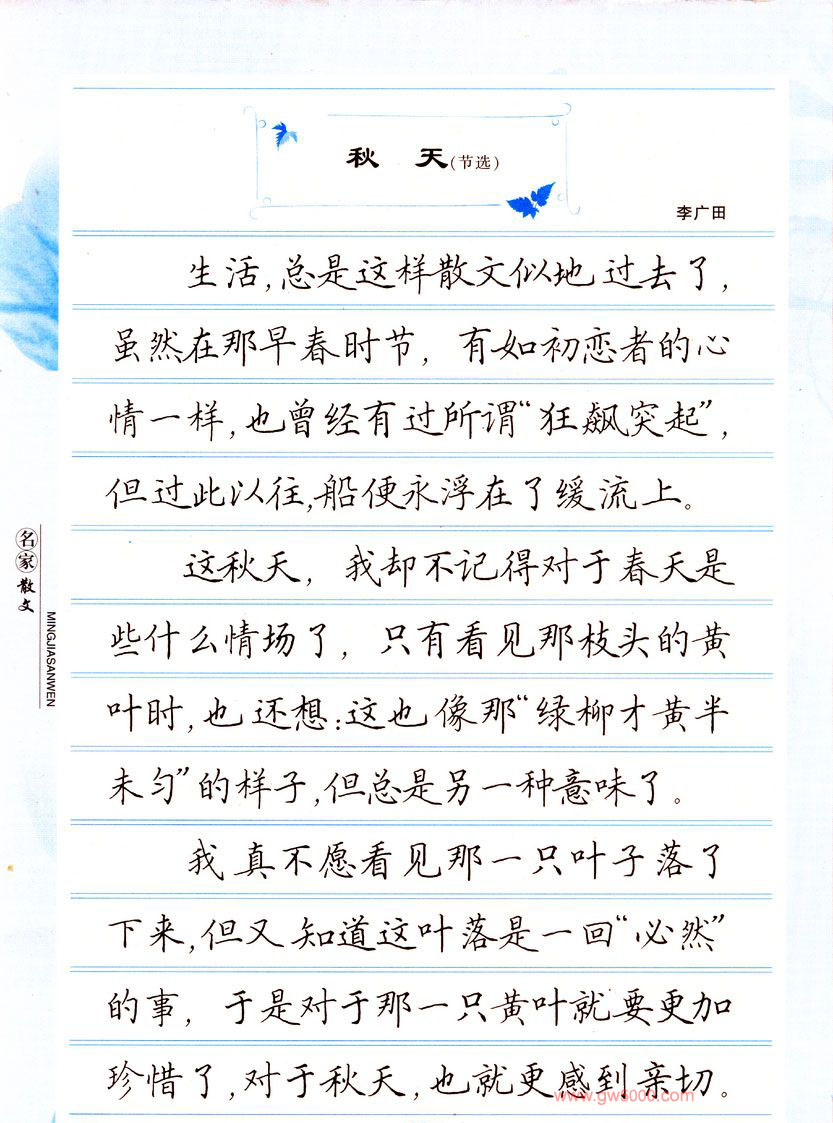 秋 天(节选)
李广田
生活,总是这样散文似地过去了,
虽然在那早春时节,有如初恋者的心
情一样,也曾经有过所谓“狂飙突起”,
但过此以往,船便永浮在了缓流上。
这秋天,我却不记得对于春天是
些什么情场了,只有看见那枝头的黄
叶时,也还想:这也像那“绿柳才黄半
未匀”的样子,但总是另一种意味了。
我真不愿看见那一只叶子落了
下来,但又知道这叶落是一回“必然”
的事,于是对于那一只黄叶就要更加
珍惜了,对于秋天,也就更感到亲切。
名家散文
MINGJIASANWEN
www.gw5000.com